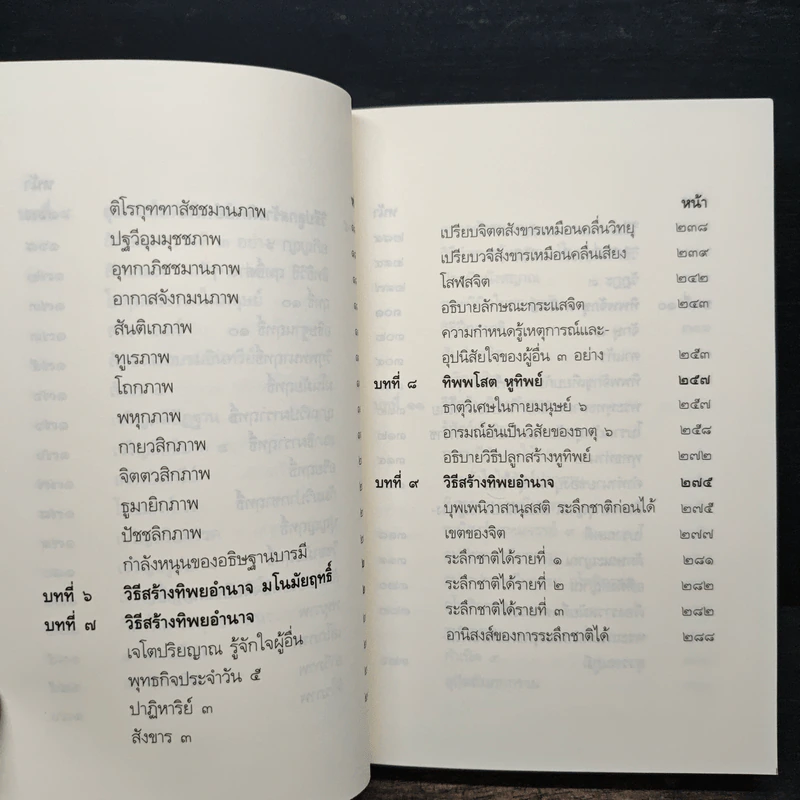 ติโรกุฑฑาสัชชมานภาพ
ปฐวีอุมมุชชภาพ
อุทกาภิชชมานภาพ
อากาสจังกมนภาพ
สันติเกภาพ
ทูเรภาพ
โถกภาพ
พหุกภาพ
กายวสิกภาพ
จิตตวสิกภาพ
ธูมายิกภาพ
ปัชชลิกภาพ
กำลังหนุนของอธิษฐานบารมี
บทที่ ๖ วิธีสร้างทิพยอำนาจ มโนมัยฤทธิ์
บทที่ ๗ วิธีสร้างทิพยอำนาจ
เจโตปริยญาณ รู้จักใจผู้อื่น
พุทธกิจประจำวัน ๕
ปาฏิหาริย์ ๓
สังขาร ๓
หน้า
เปรียบจิตตสังขารเหมือนคลื่นวิทยุ ๒๓๘
เปรียบวจีสังขารเหมือนคลื่นเสียง ๒๓๙
โสฬสจิต ๒๔๒
อธิบายลักษณะกระแสจิต ๒๔๓
ความกำหนดรู้เหตุการณ์และ-
อุปนิสัยใจของผู้อื่น ๓ อย่าง ๒๕๓
บทที่ ๘ ทิพพโสต หูทิพย์ ๒๕๗
ธาตุวิเศษในกายมนุษย์ ๖ ๒๕๗
อารมณ์อันเป็นวิสัยของธาตุ ๖ ๒๕๘
อธิบายวิธีปลูกสร้างหูทิพย์ ๒๗๒
บทที่ ๙ วิธีสร้างทิพยอำนาจ ๒๗๕
บุพเพนิวาสานุสสติ ระลึกชาติก่อนได้ ๒๗๕
เขตของจิต ๒๗๗
ระลึกชาติได้รายที่ ๑ ๒๘๑
ระลึกชาติได้รายที่ ๒ ๒๘๒
ระลึกชาติได้รายที่ ๓ ๒๘๒
อานิสงส์ของการระลึกชาติได้ ๒๘๘